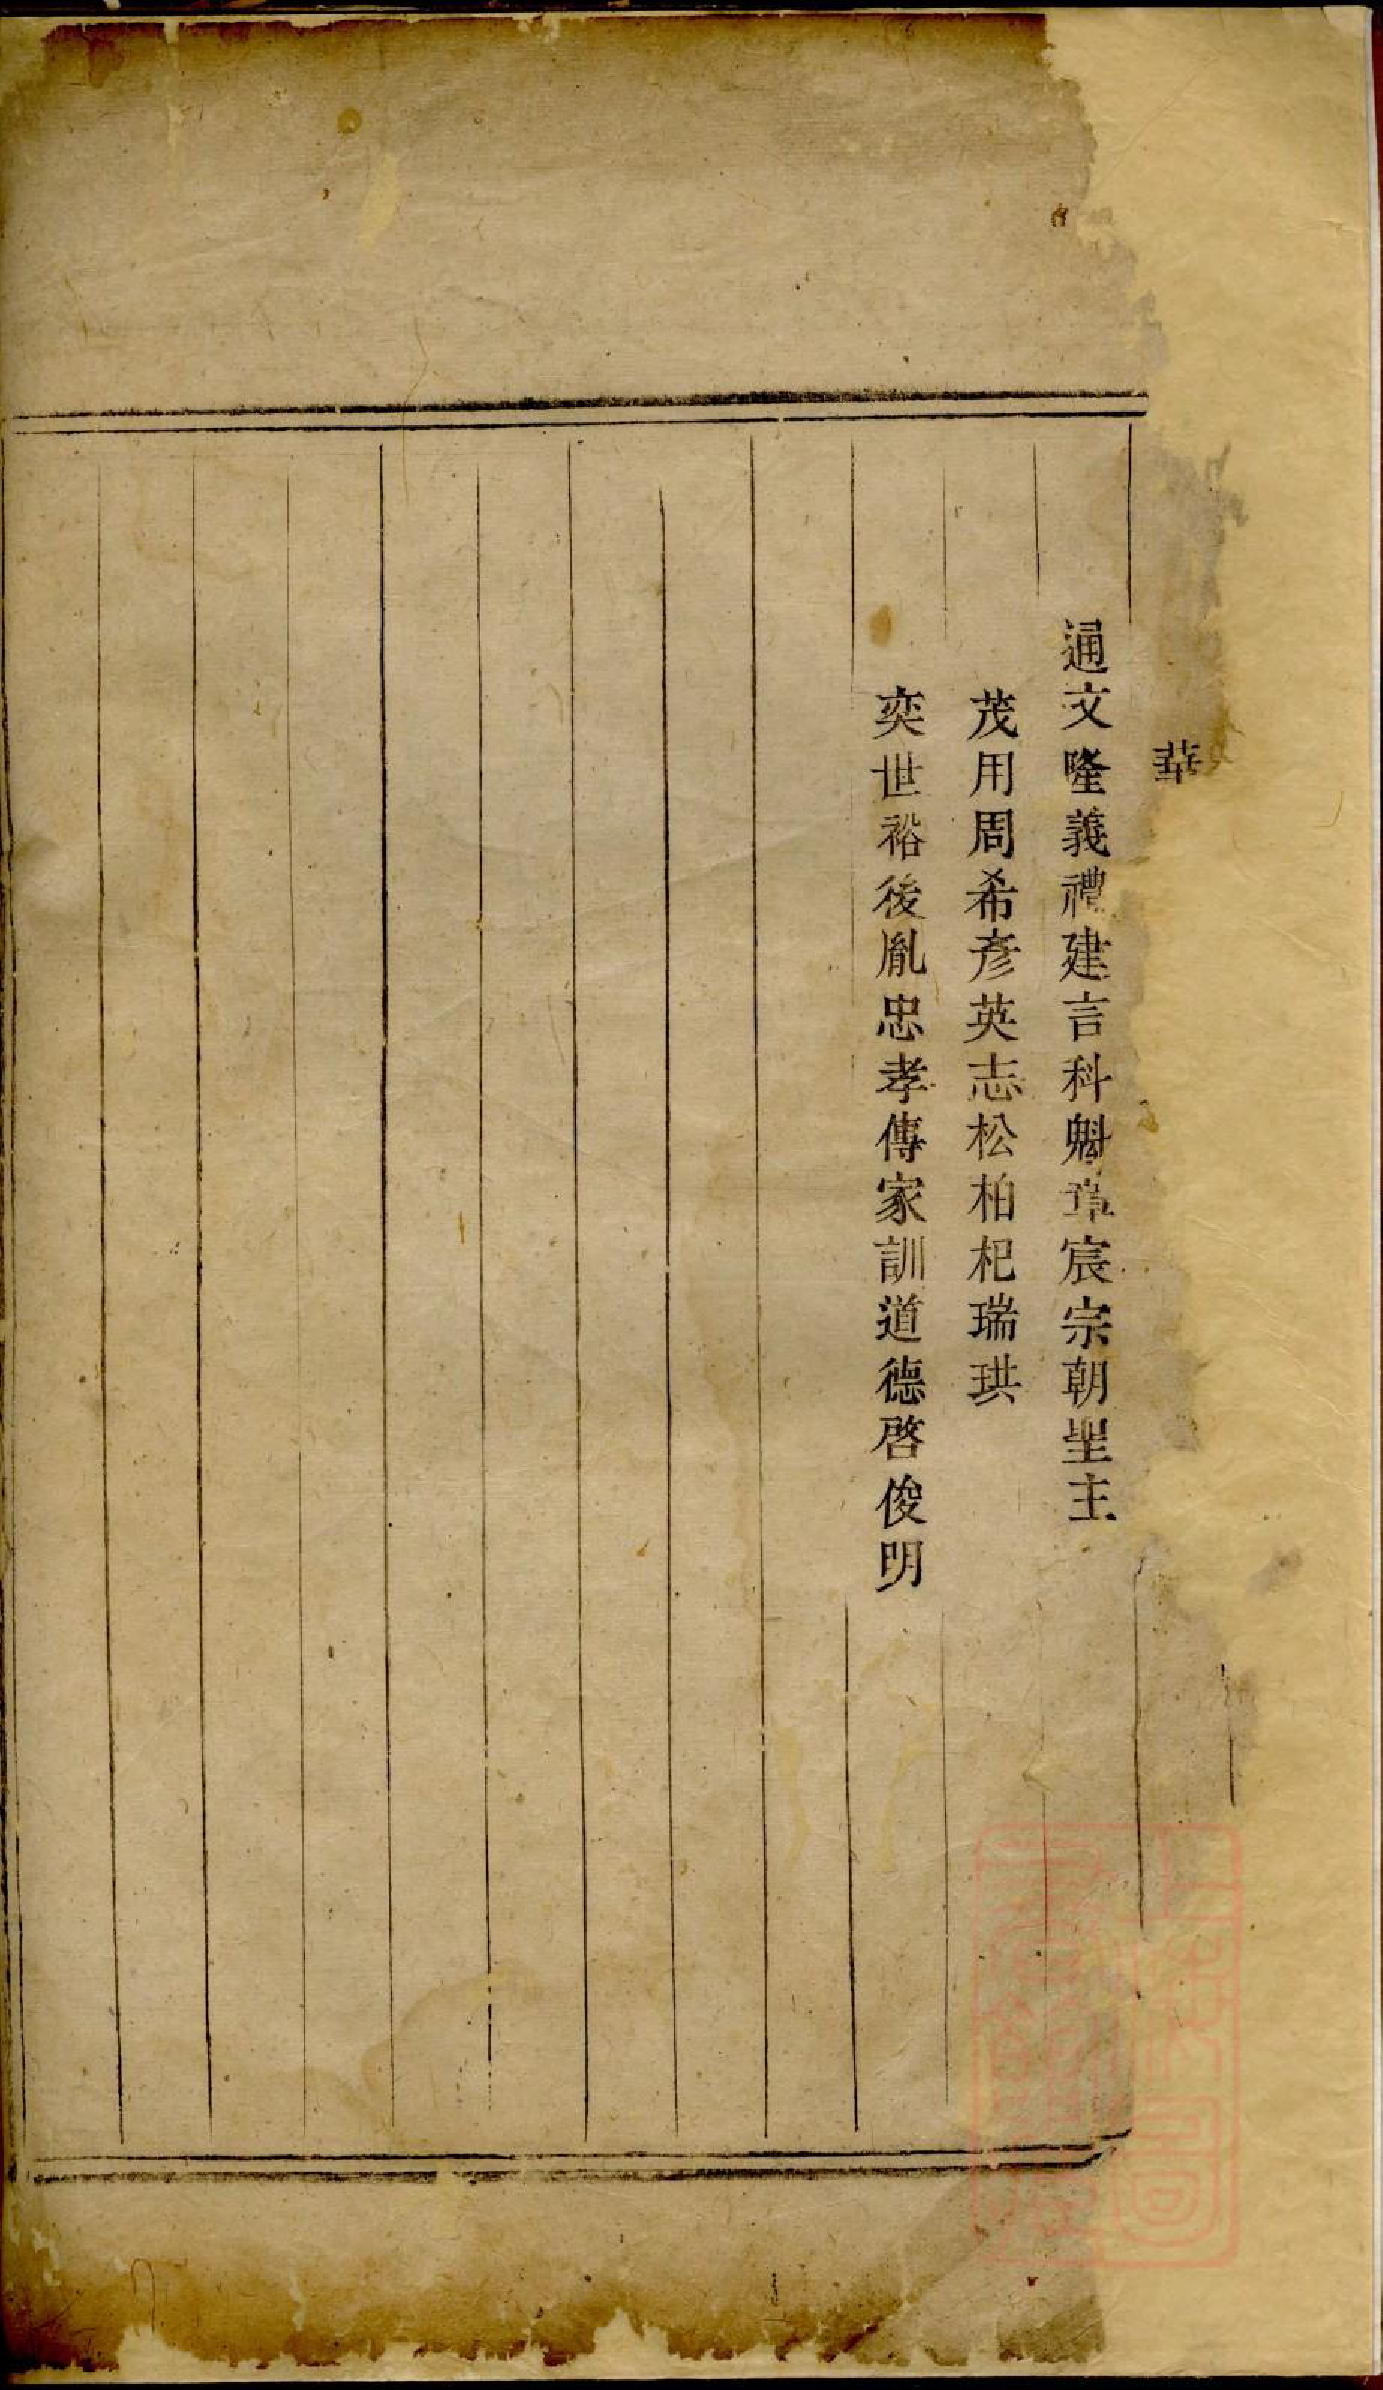 華
通文隆義禮建言科魁章宸宗朝聖主
茂用周希彦英志松柏杞瑞珙
奕世裕後胤忠孝傳家訓道德啓俊明
上海圖書館藏